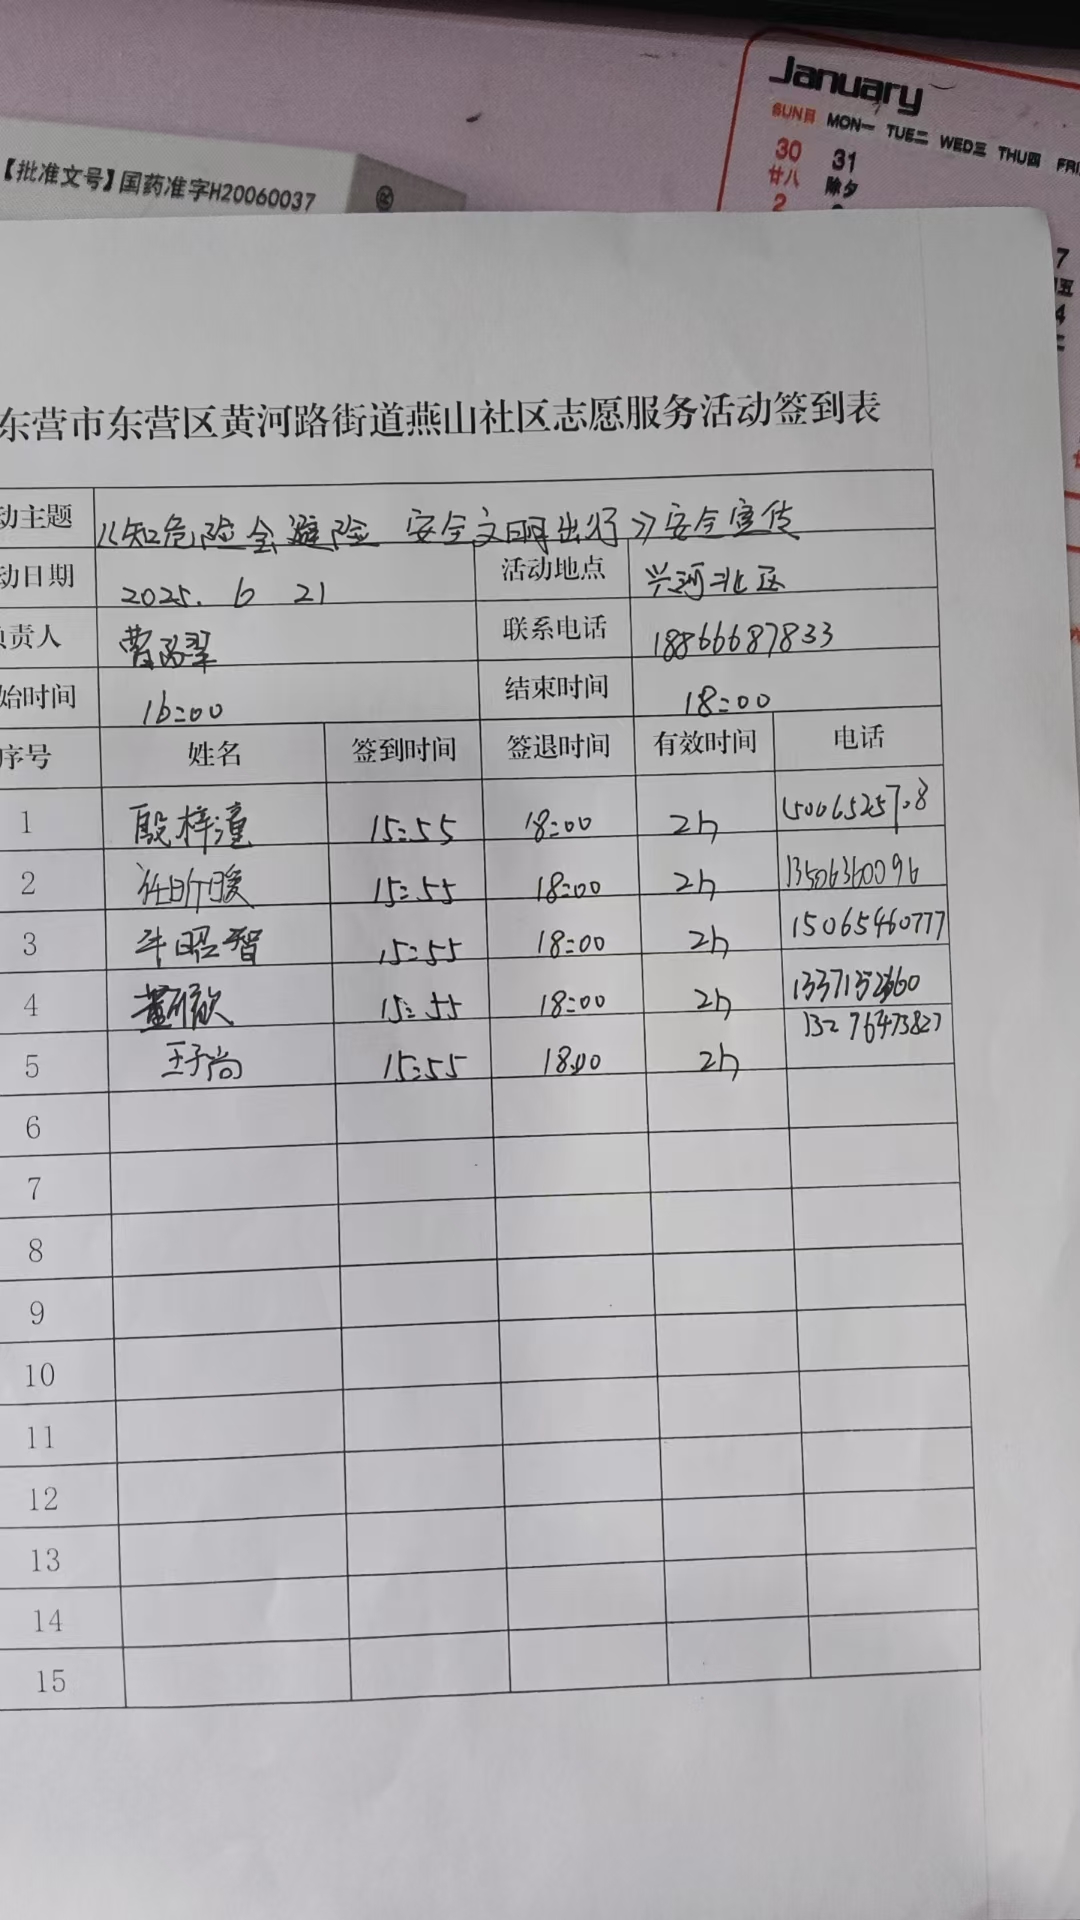 January
SUN日 MON一 TUE二 WED三 THU四 FRI
30 31
廿八 除夕
2
7
4
【批准文号】国药准字H20060037
东营市东营区黄河路街道燕山社区志愿服务活动签到表
动主题 《知危险会避险 安全文明出行》安全宣传
动日期 2025. 6 21 活动地点 兴河北区
负责人 曹 翠 联系电话 18866687833
始时间 16:00 结束时间 18:00
序号 姓名 签到时间 签退时间 有效时间 电话
1 殷梓潼 15:55 18:00 2h
2 任昕暖 15:55 18:00 2h 13506360096
3 牛昭智 15:55 18:00 2h 15065460777
4 董 欣 15:55 18:00 2h
5 王子尚 15:55 18:00 2h 13276473827
6
7
8
9
10
11
12
13
14
15